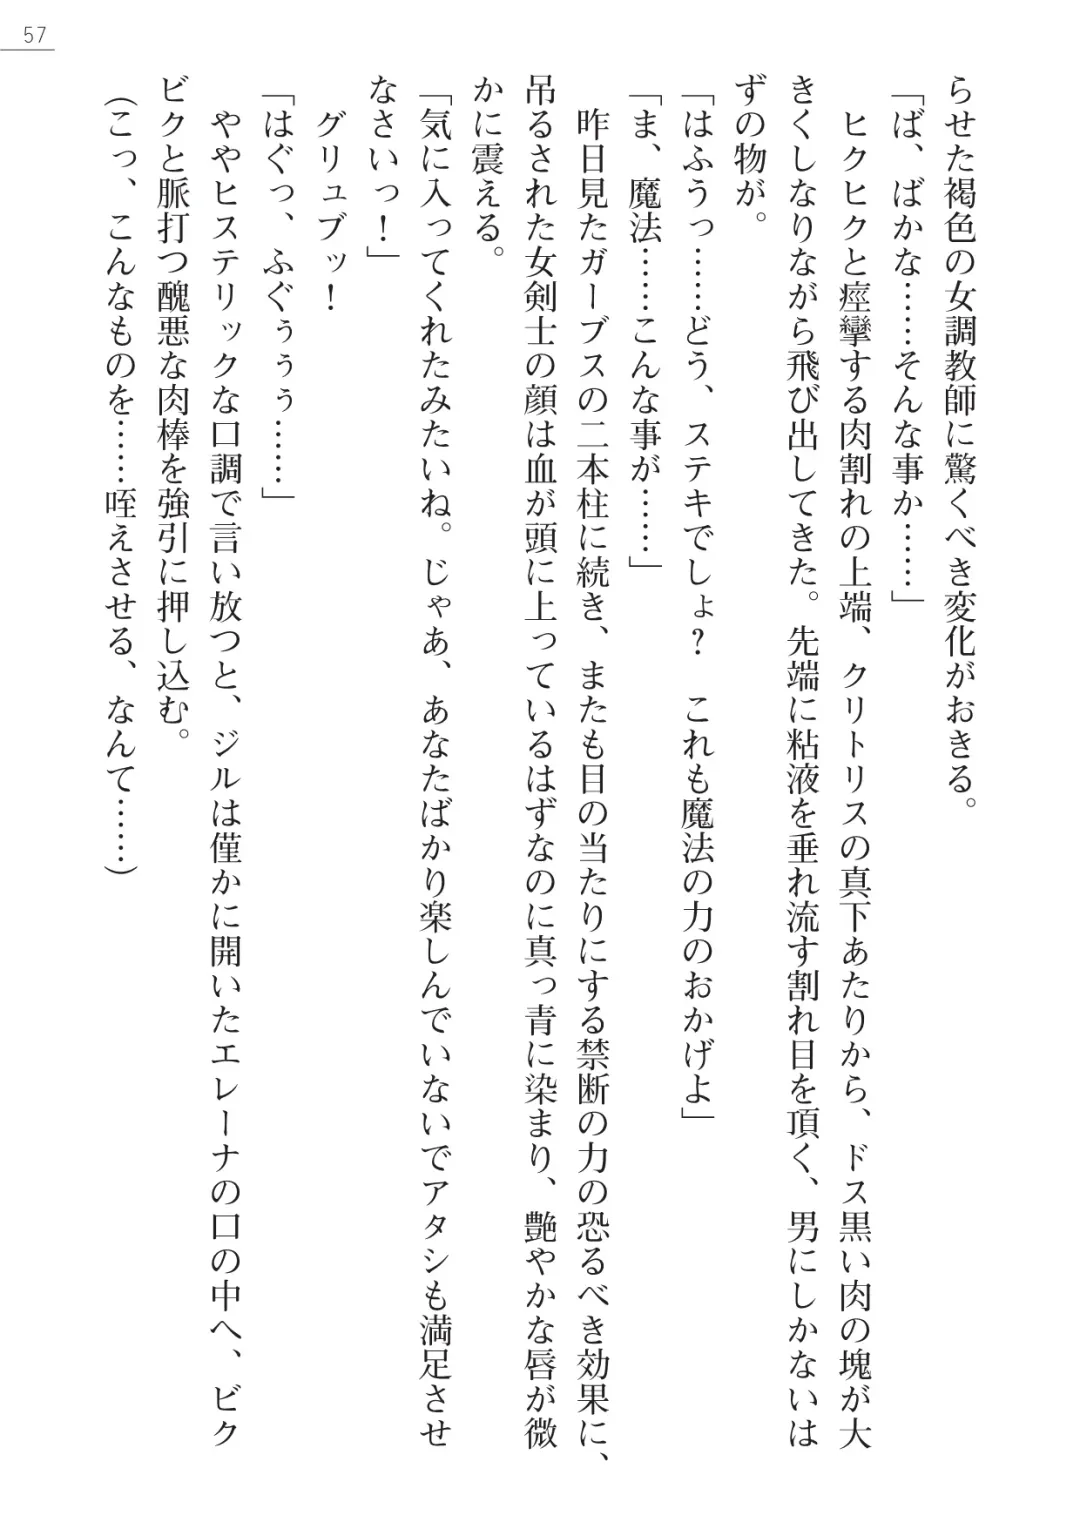 57
らせた褐色の女調教師に驚くべき変化がおきる。
「ば、ばかな……そんな事か……」
ヒクヒクと痙攣する肉割れの上端、クリトリスの真下あたりから、ドス黒い肉の塊が大
きくしなりながら飛び出してきた。先端に粘液を垂れ流す割れ目を頂く、男にしかないは
ずの物が。
「はふうっ……どう、ステキでしょ？　これも魔法の力のおかげよ」
「ま、魔法……こんな事が……」
昨日見たガーブスの二本柱に続き、またも目の当たりにする禁断の力の恐るべき効果に、
吊るされた女剣士の顔は血が頭に上っているはずなのに真っ青に染まり、艶やかな唇が微
かに震える。
「気に入ってくれたみたいね。じゃあ、あなたばかり楽しんでいないでアタシも満足させ
なさいっ！」
グリュブッ！
「はぐっ、ふぐぅぅぅ……」
ややヒステリックな口調で言い放つと、ジルは僅かに開いたエレーナの口の中へ、ビク
ビクと脈打つ醜悪な肉棒を強引に押し込む。
（こっ、こんなものを……咥えさせる、なんて……）